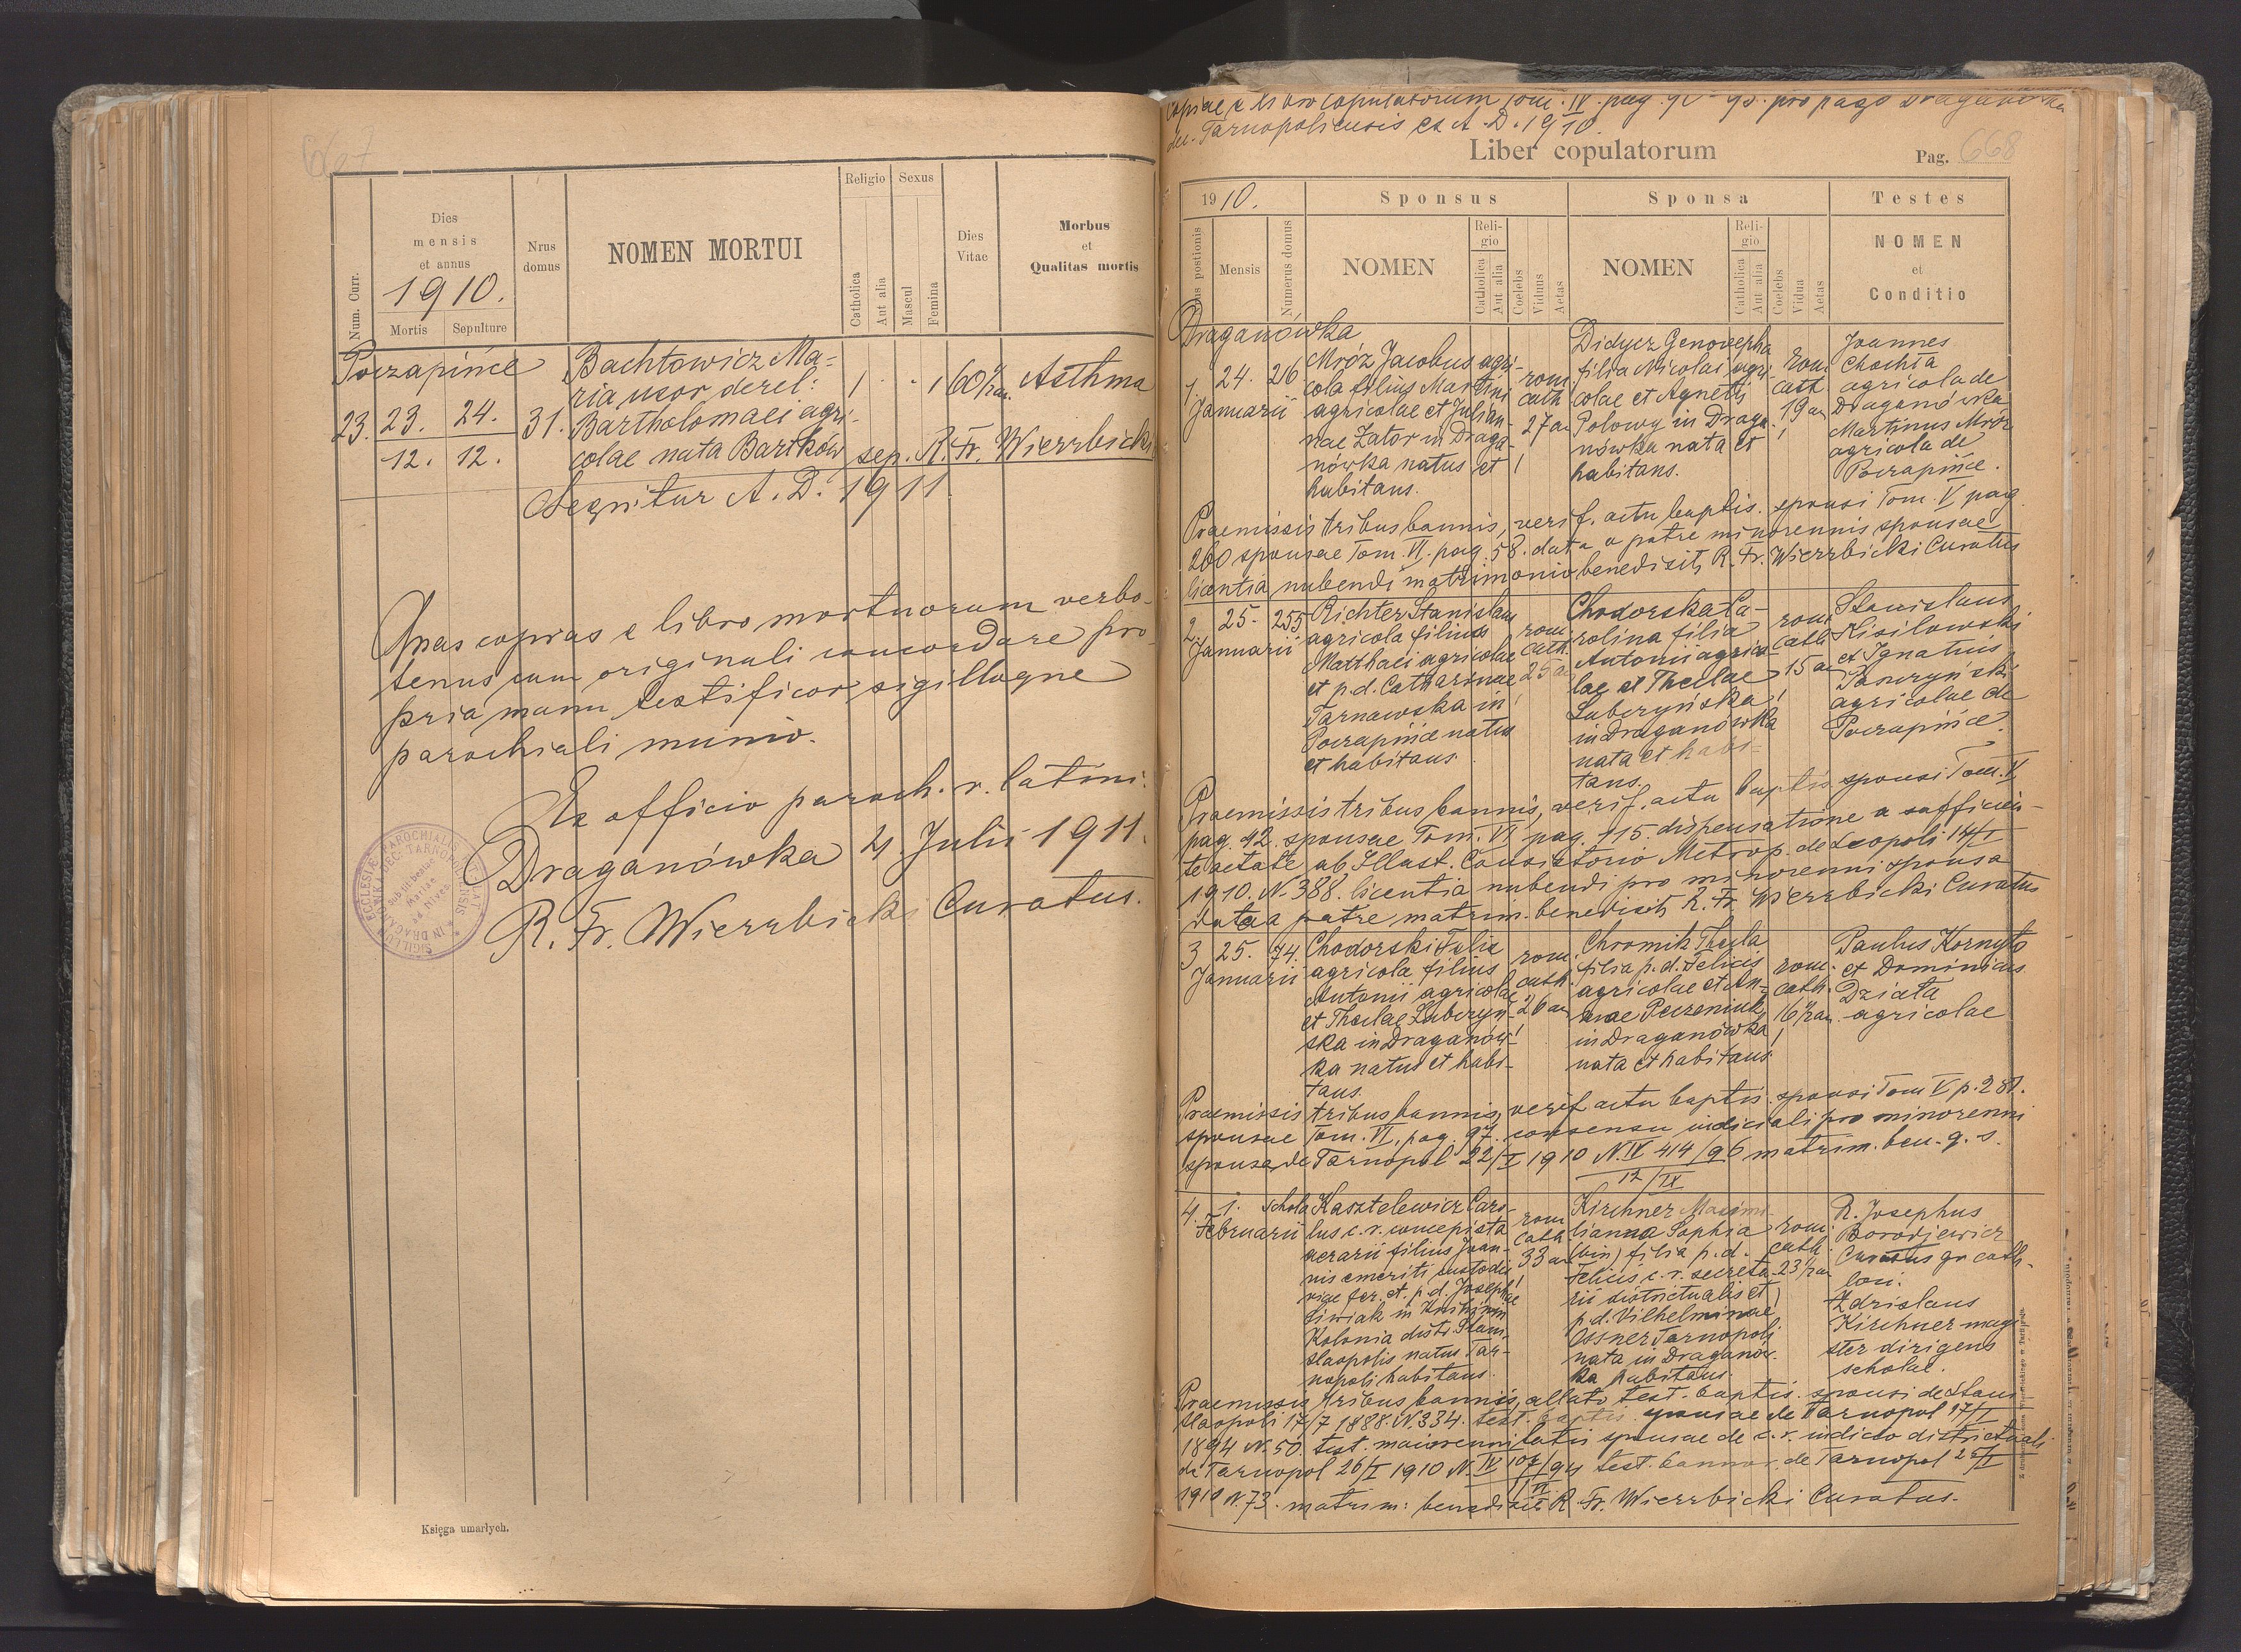 667
Num. Curr.
Dies
mensis
et annus
1910.
Mortis
Sepulture
Nrus
domus
NOMEN MORTUI
Religio
Catholica
Aut alia
Sexus
Mascul
Femina
Dies
Vitae
Morbus
et
Qualitas mortis
Poczapińce
23. 23. 24. 31.
12. 12.
Bachtowicz Ma-
ria uxor derel:
Bartholomaei agri-
colae nata Bartków
1 . . 1 60 1/2 an. Asthma
sep. R. Fr. Wierzbicki
Sequitur A. D. 1911
copias e libro mortuorum verbo-
tenus cum originali concordare pro-
pria manu testificor sigilloque
parochiali munio.
Ex officio paroch. r. latini:
Draganówka 4 Julii 1911.
R. Fr. Wierzbicki Curatus.
Księga umarłych.
Copiae e libro copulatorum Tom. IV. pag. 90-95. pro pago Draganówka
dec. Tarnopoliensis ex A. D. 1910.
Liber copulatorum
Pag. 668
1910.
Sponsus
Sponsa
Testes
Mensis
Numerus domus
NOMEN
Religio
Catholica
Aut alia
Coelebs
Viduus
Aetas
NOMEN
Religio
Catholica
Aut alia
Coelebs
Vidua
Aetas
NOMEN
et
Conditio
Draganówka
1. 24. 216
Januarii
Mróz Jacobus agri-
cola filius Martini
agricolae et Julian-
nae Zator in Draga-
nówka natus et
habitans.
rom
cath
27 an
!
Didycz Genovepha
filia Nicolai agri-
colae et Agnetis
Polowy in Draga-
nówka nata et
habitans.
rom.
cath
19 an
!
Joannes
Chochla
agricola de
Draganówka
Martinus Mróz
agricola de
Poczapińce.
Praemissis tribus bannis, verif. actu baptis. sponsi Tom. V pag
260 sponsae Tom. VI. pag. 58. data a patre minorennis sponsae
licentia nubendi matrimonio benedixit R. Fr. Wierzbicki Curatus
2 25. 255
Januarii
Richter Stanislaus
agricola filius
Matthaei agricolae
et p.d. Catharinae
Tarnawska in
Poczapińce natus
et habitans.
rom
cath.
25 an
!
Chodorska Ca-
rolina filia
Antonii agrico-
lae et Theclae
Luberzyńska
in Draganówka
nata et habi-
tans.
rom
cath
15 an
!
Stanislaus
Kisilowski
et Ignatius
agricolae de
Poczapińce.
Praemissis tribus bannis, verif. actu baptis sponsi Tom. V
pag. 42. sponsae Tom. VI pag. 115. dispensatione a sufficien-
te aetate ab Illust. Consistorio Metrop. de Leopoli 14/I
1910. N. 388. licentia nubendi pro minorenni sponsa
data a patre matrim. benedixit R. Fr. Wierzbicki Curatus
3 25. 74.
Januarii
Chodorski Felix
agricola filius
Antonii agricolae
et Theclae Luberzyń-
ska in Draganów-
ka natus et habi-
tans.
rom.
cath.
26 an
!
Chromik Thecla
filia p.d. Felicis
agricolae et An-
nae Peczeniuk
in Draganówka
nata et habitans.
rom.
cath.
16 1/2 an.
!
Paulus Kornyło
et Dominicus
Dziáta
agricolae
Praemissis tribus bannis, verif actu baptis. sponsi Tom V p. 281.
sponsae Tom. VI. pag. 97. consensu iudiciali pro minorenni
sponsa de Tarnopol 22/I 1910 N. IV 414/96 matrim. ben. q. s.
12/IX
4. 1. Schola
Februarii
Kasztelewicz Caro-
lus c. r. concepista
aerarii filius Joan-
nis emeriti custodis
viae fer. et p.d. Josephae
Siwiak in Knihinin
Kolonia distr. Stani-
slaopolis natus Tar-
nopoli habitans.
rom
cath
33 an
!
Kirchner Maximi-
lianna Sophia
(bin) filia p.d.
Felicis c. r. secreta-
rii districtualis et
p.d. Vilhelminae
Ossner Tarnopoli
nata in Draganów-
ka habitans.
rom.
cath.
23 1/2 an
!
R. Josephus
Borodjewicz
Curatus gr cath.
loci.
Zdzislaus
Kirchner magi-
ster dirigens
scholae.
Praemissis tribus bannis, allato test. baptis. sponsi de Stani-
slaopoli 17/7 1888. N. 334. test. baptis. sponsae de Tarnopol 17/I
1894 N. 50. test. maiorennitatis sponsae de c. r. iudicio districtuali
de Tarnopol 26/I 1910 N. IV 107/94 test. bannor. de Tarnopol 25/I
1910 N. 73. matrim: benedixit R. Fr. Wierzbicki Curatus.